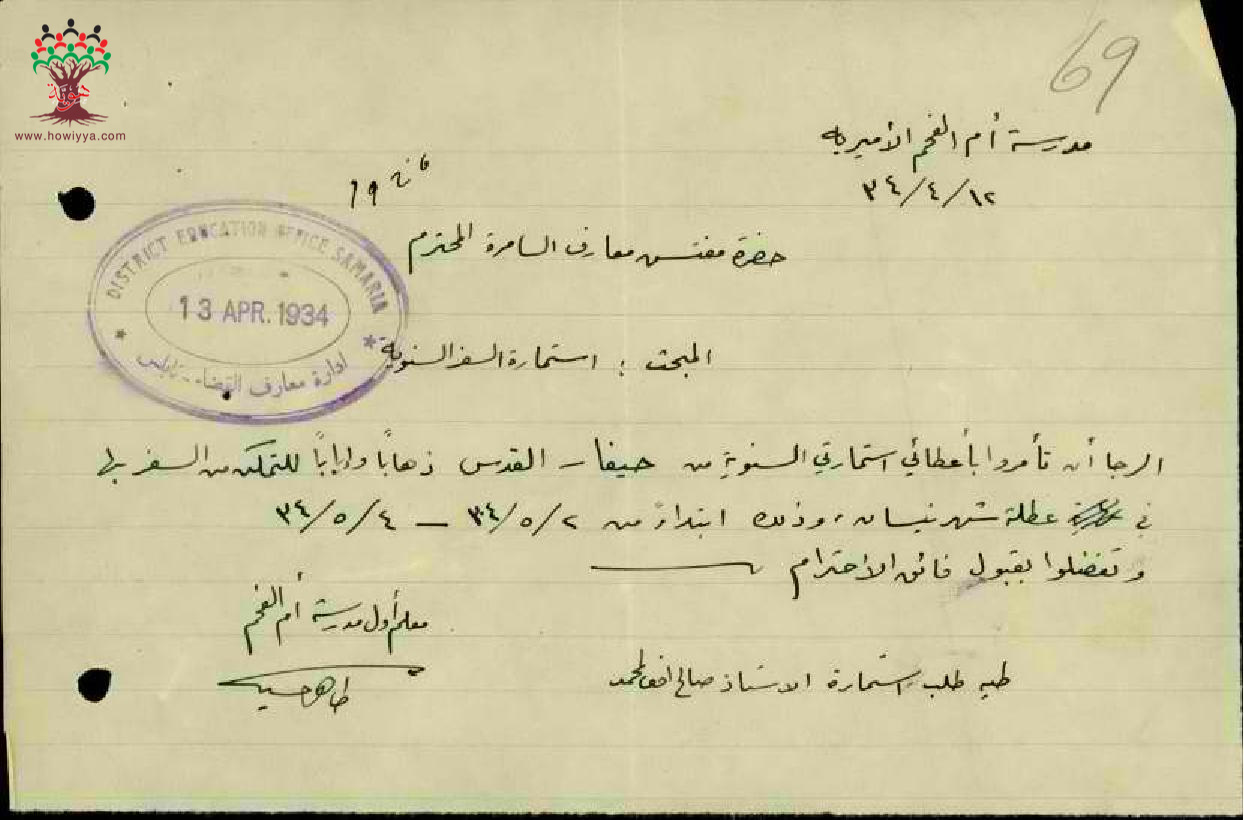 69
مدرسة أم الفحم الأميرية
٣٤/٤/١٢
حضرة مفتش معارف السامرة المحترم
DISTRICT EDUCATION OFFICE SAMARIA
13 APR. 1934
ادارة معارف القضاء - نابلس
المبحث : استمارة السفر السنوية
الرجا أن تأمروا بأعطائي استمارتي السنوية من حيفا - القدس ذهابًا وايابًا للتمكن من السفر بها
في عطلة شهر نيسان، وذلك ابتداءً من ٣٤/٥/٢ - ٣٤/٥/٤
وتفضلوا بقبول فائق الاحترام
معلم أول مدرسة أم الفحم
طاهر حسين
طيه طلب استمارة الاستاذ صالح المحمد
هوية
www.howiyya.com